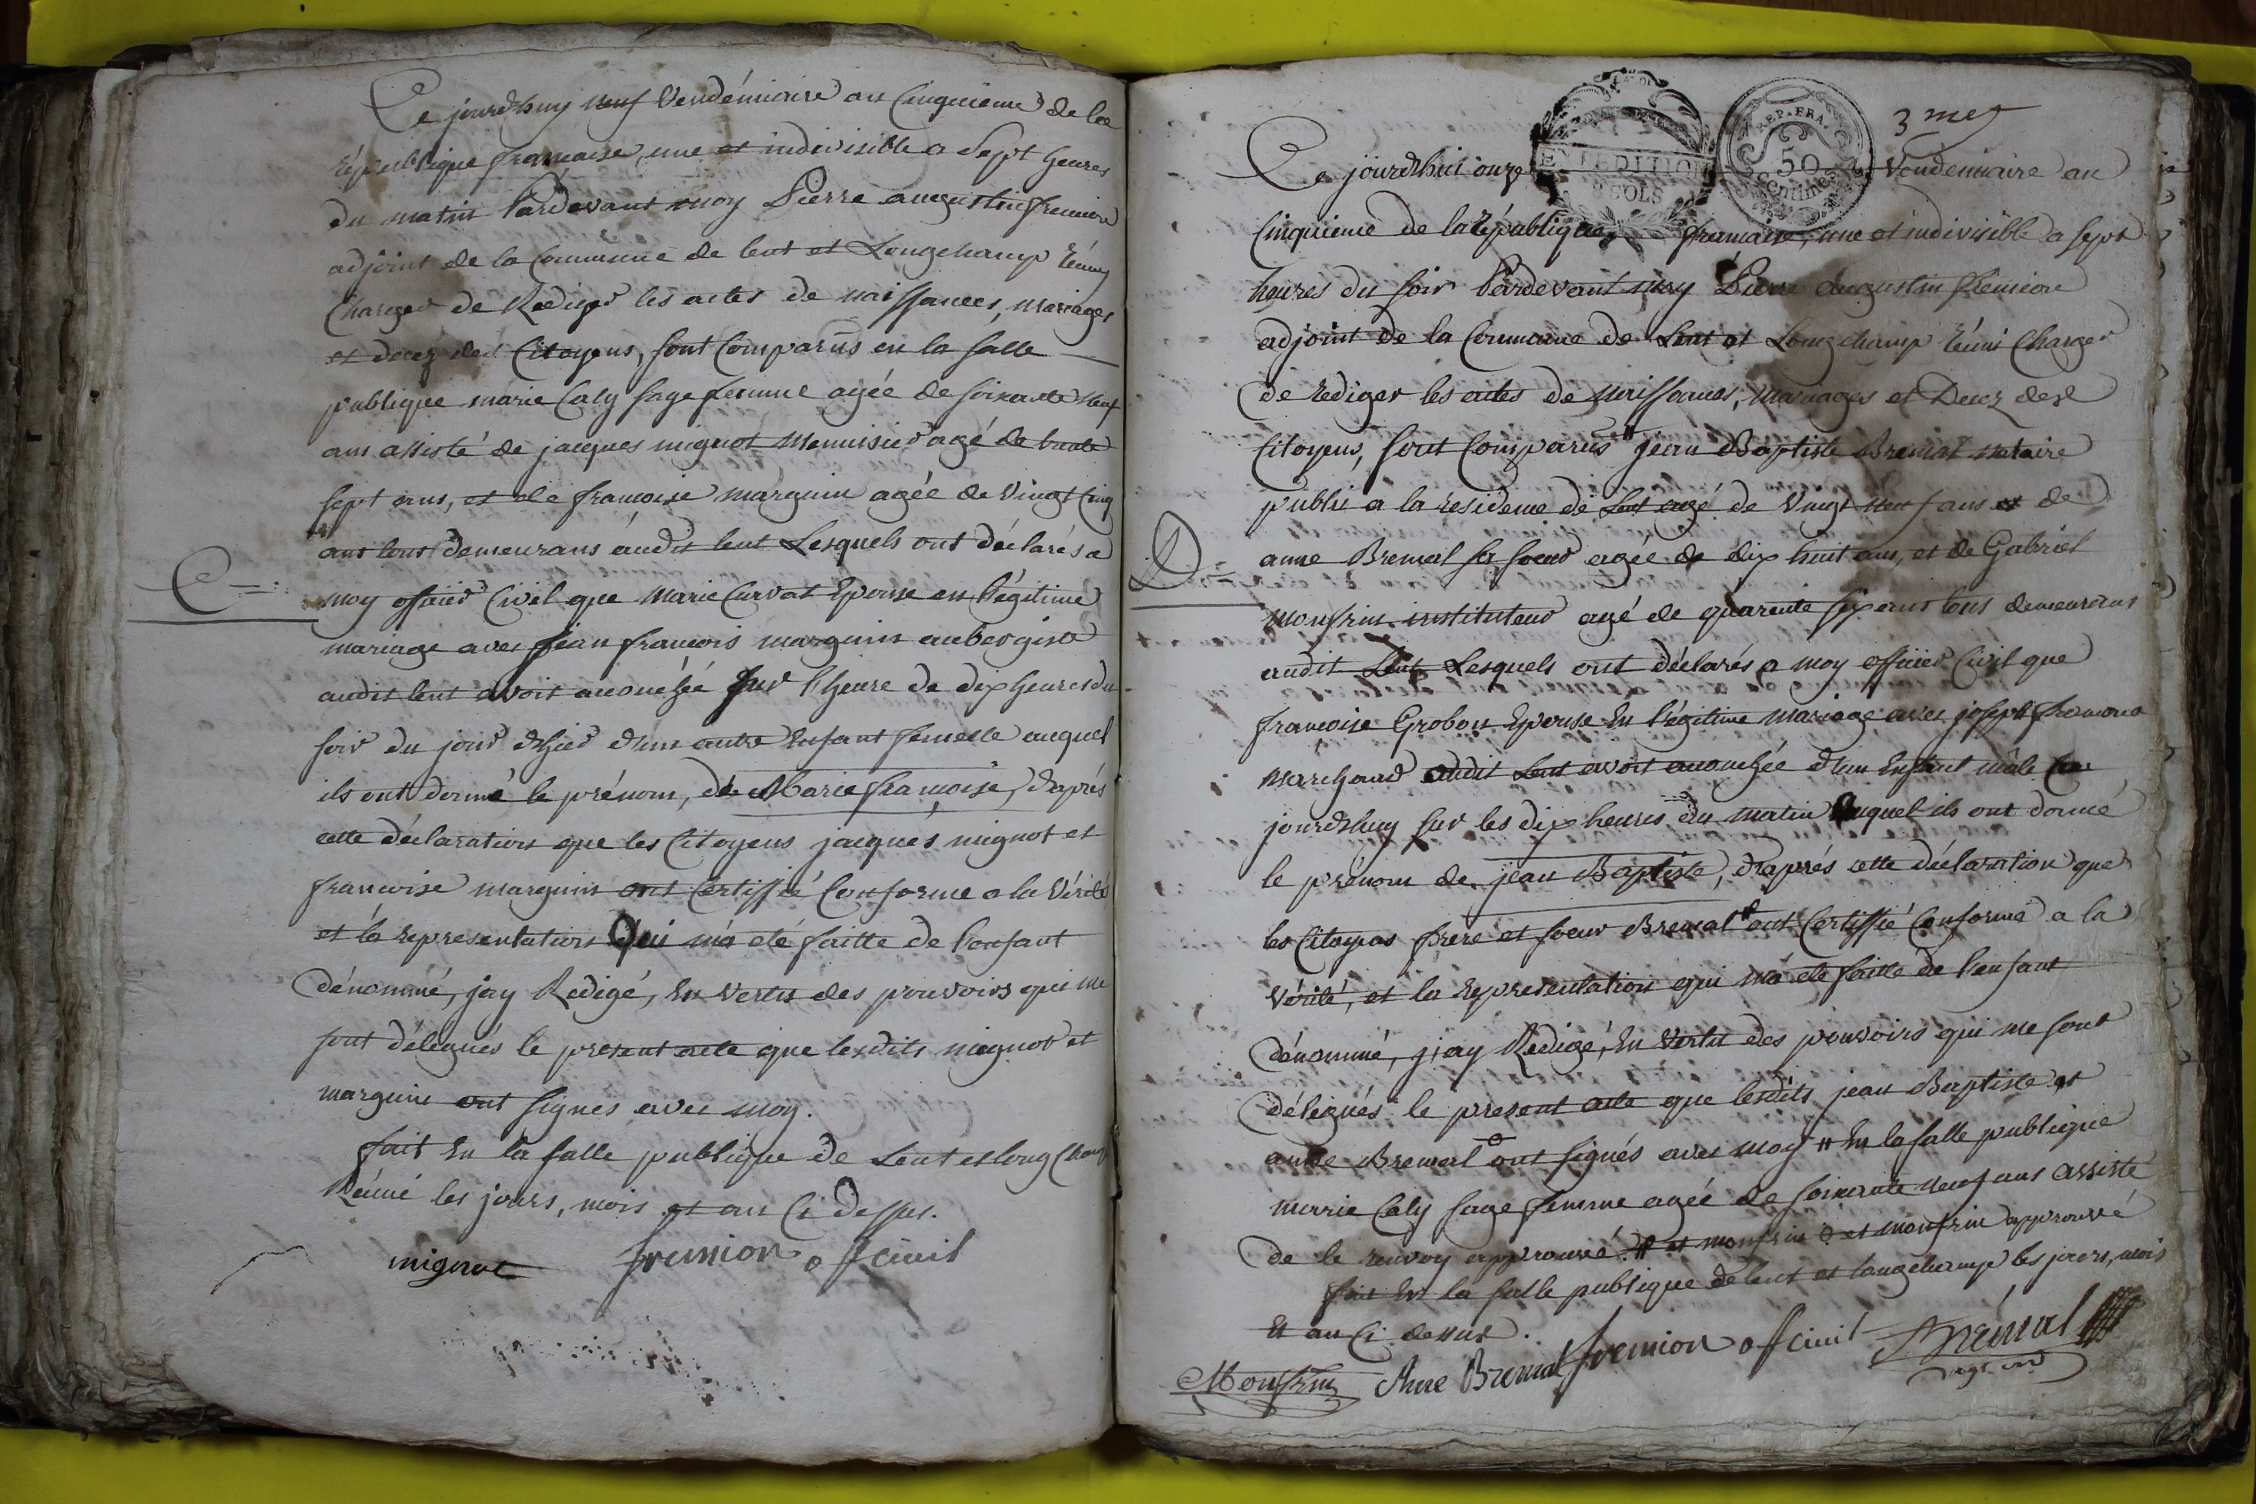 Ce jourdhuy neuf Vendémiaire an Cinquieme de la
République francaise, une et indivisible a Sept heures
du matin Pardevant moy Pierre augustin fremion
adjoint de la Commune de lent et Longchamp Réuny
Charger de Rediger les actes de naissances, mariages
et decez des Citoyens, sont Comparus en la salle
publique marie Caly sage femme agée de soixante neuf
ans assisté de jacques mignot Menuisier agé de trente
sept ans, et de francoise marguin agée de Vingt Cinq
ans tous demeurans audit lent Lesquels ont déclarés a
moy officier Civil que Marie Curvat Epouse en légitime
C
mariage avec jean francois marguin aubergiste
audit lent avoit acouchéé sur l'heure de dix heures du
soir du jour d'hier d'un autre Enfant femelle auquel
ils ont donné le prénom, de Marie francoise, d'après
cette déclaration que les Citoyens jacques mignot et
francoise marguin ont Certiffié Conforme a la Vérité
et la representation Qui ma eté faitte de l'enfant
dénommé, jay Redigé, En vertu des pouvoirs qui me
sont délegués le present acte que lesdits mignot et
marguin ont signes avec moy.
fait En la salle publique de Lent et long Champ
Réuné les jours, mois et an Ci dessus.
mignot fremion off civil
3 me
EXPEDITION
SOLS
REP. FRA.
50
Centimes
Ce jourdhui onze Vendemiaire an
Cinquieme de la République francaise, une et indivisible a sept
heures du soir Pardevant moy Pierre Augustin fremion
adjoint de la Commune de Lent et Longchamp Réuni Charger
de rediger les actes de Naissances, Mariages et Decez des
Citoyens, sont Comparus # jean Baptiste Bremal notaire
public a la residence de Lent agé de Vingt neuf ans et de
D
anne Bremal sa soeur agée de dix huit ans, et de Gabriel
Monfrin instituteur agé de quarente six ans tous demeurans
audit Lent Lesquels ont déclarés a moy officier Civil que
francoise Grobon Epouse En légitime Mariage avec joseph
Marchand audit Lent avoit acouchée d'un Enfant mâle Ce
jourdhuy sur les dix heures du matin auquel ils ont donné
le prénom de jean Baptiste, d'après cette déclaration que
les Citoyens frere et soeur Bremal # ont Certiffié Conforme a la
Vérité, et la representation qui ma eté faitte de l'enfant
dénommé, j'ay Redigé, En vertu des pouvoirs qui me sont
délegués le present acte que lesdits jean Baptiste et
anne Bremal ont signés avec moy # En la salle publique
marie Caly sage femme agée de soixante neuf ans assisté
de le renvoy approuvé. # et monfrin o et monfrin approuvé
fait En la salle publique de lent et longchamp les jours, mois
Et an Ci dessus.
Monfrin Anne Bremal fremion off civil Bremal